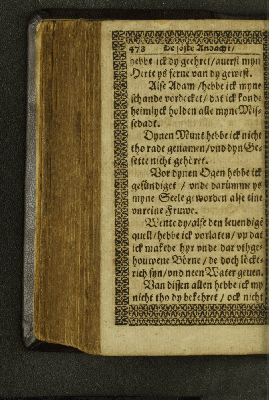 478 De söste Andacht /
hebbe ick dy geehret / auerst myn
Herte ys ferne van dy gewest.
Alse Adam / hebbe ick myne
schande vordecket / dat ick konde
heimlyck holden alle myne Mis-
sedadt.
Dynen Munt hebbe ick nicht
tho rade genamen / vnd dyn Ge-
sette nicht gehöret.
Vor dynen Ogen hebbe ick
gesündiget / vnde darümme ys
myne Seele geworden alse eine
vnreine Fruwe.
Wente dy / alse den leuendige
quell / hebbe ick vorlaten / vp dat
ick makede hyr vnde dar vthge-
houwene Börne / de doch löcke-
rich syn / vnd neen Water geuen.
Van dissen allen hebbe ick my
nicht tho dy bekehret / ock nicht